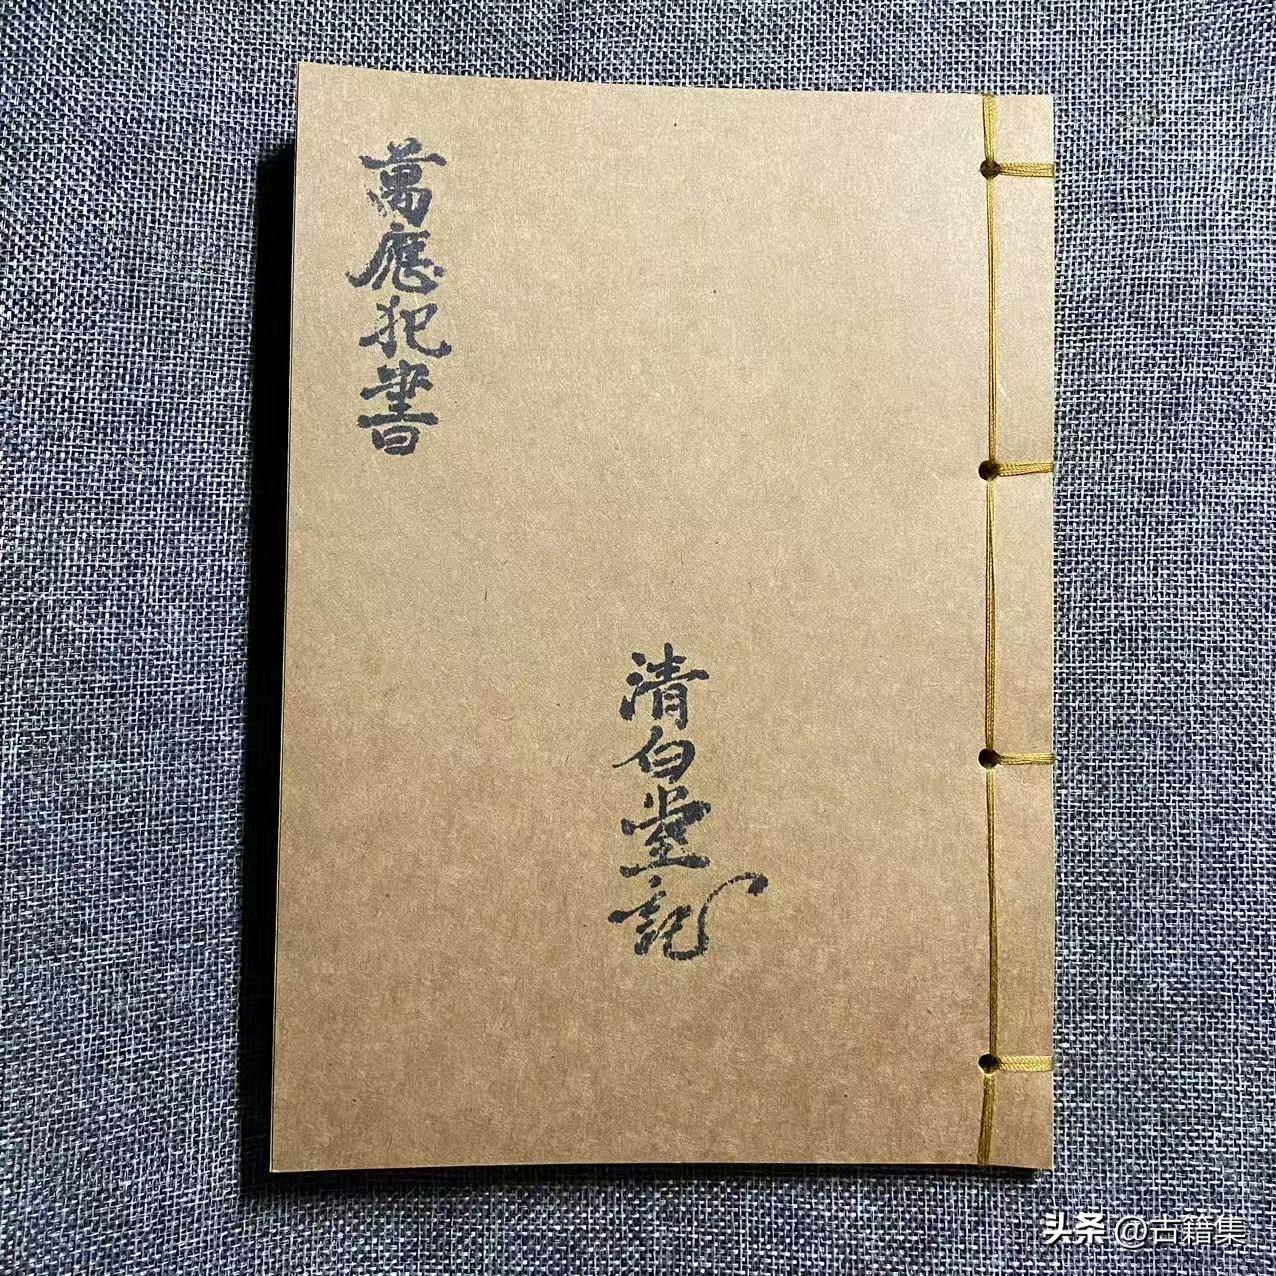 萬應犯書
清白堂記
头条 @古籍集